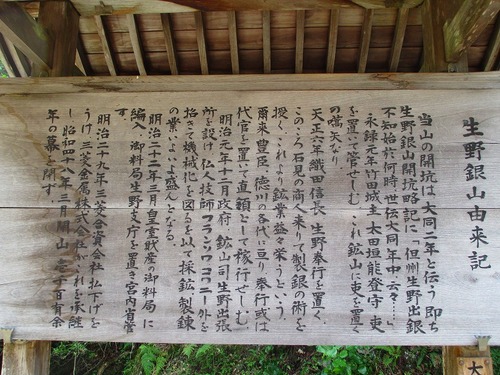 生野銀山由来記
当山の開坑は大同二年と伝う即ち
生野銀山開坑略記に「但州生野出銀
不知始於何時世伝大同年中云々……」
永禄元年竹田城主太田垣能登守吏
を置いて管せしむこれ鉱山に吏を置く
の嚆矢なり
天正六年織田信長生野奉行を置く、
このころ石見の商人来りて製銀の術を
授くこれより鉱業益々栄うという。
爾来豊臣、徳川の各代に亘り奉行或は
代官を置て直轄として稼行せしむ、
明治元年十二月政府鉱山司生野出張
所を設け仏人技師フランソワコワニー外を
招きて機械化を図る以て採鉱製錬
の業いよいよ盛んとなる。
明治二十二年三月皇室財産の御料局に
編入御料局生野支庁を置き宮内省管
す
明治二十九年三菱合資会社払下げを
うけ三菱金属株式会社がこれを承継
し昭和四十八年三月閉山
年の幕を閉ず。
大